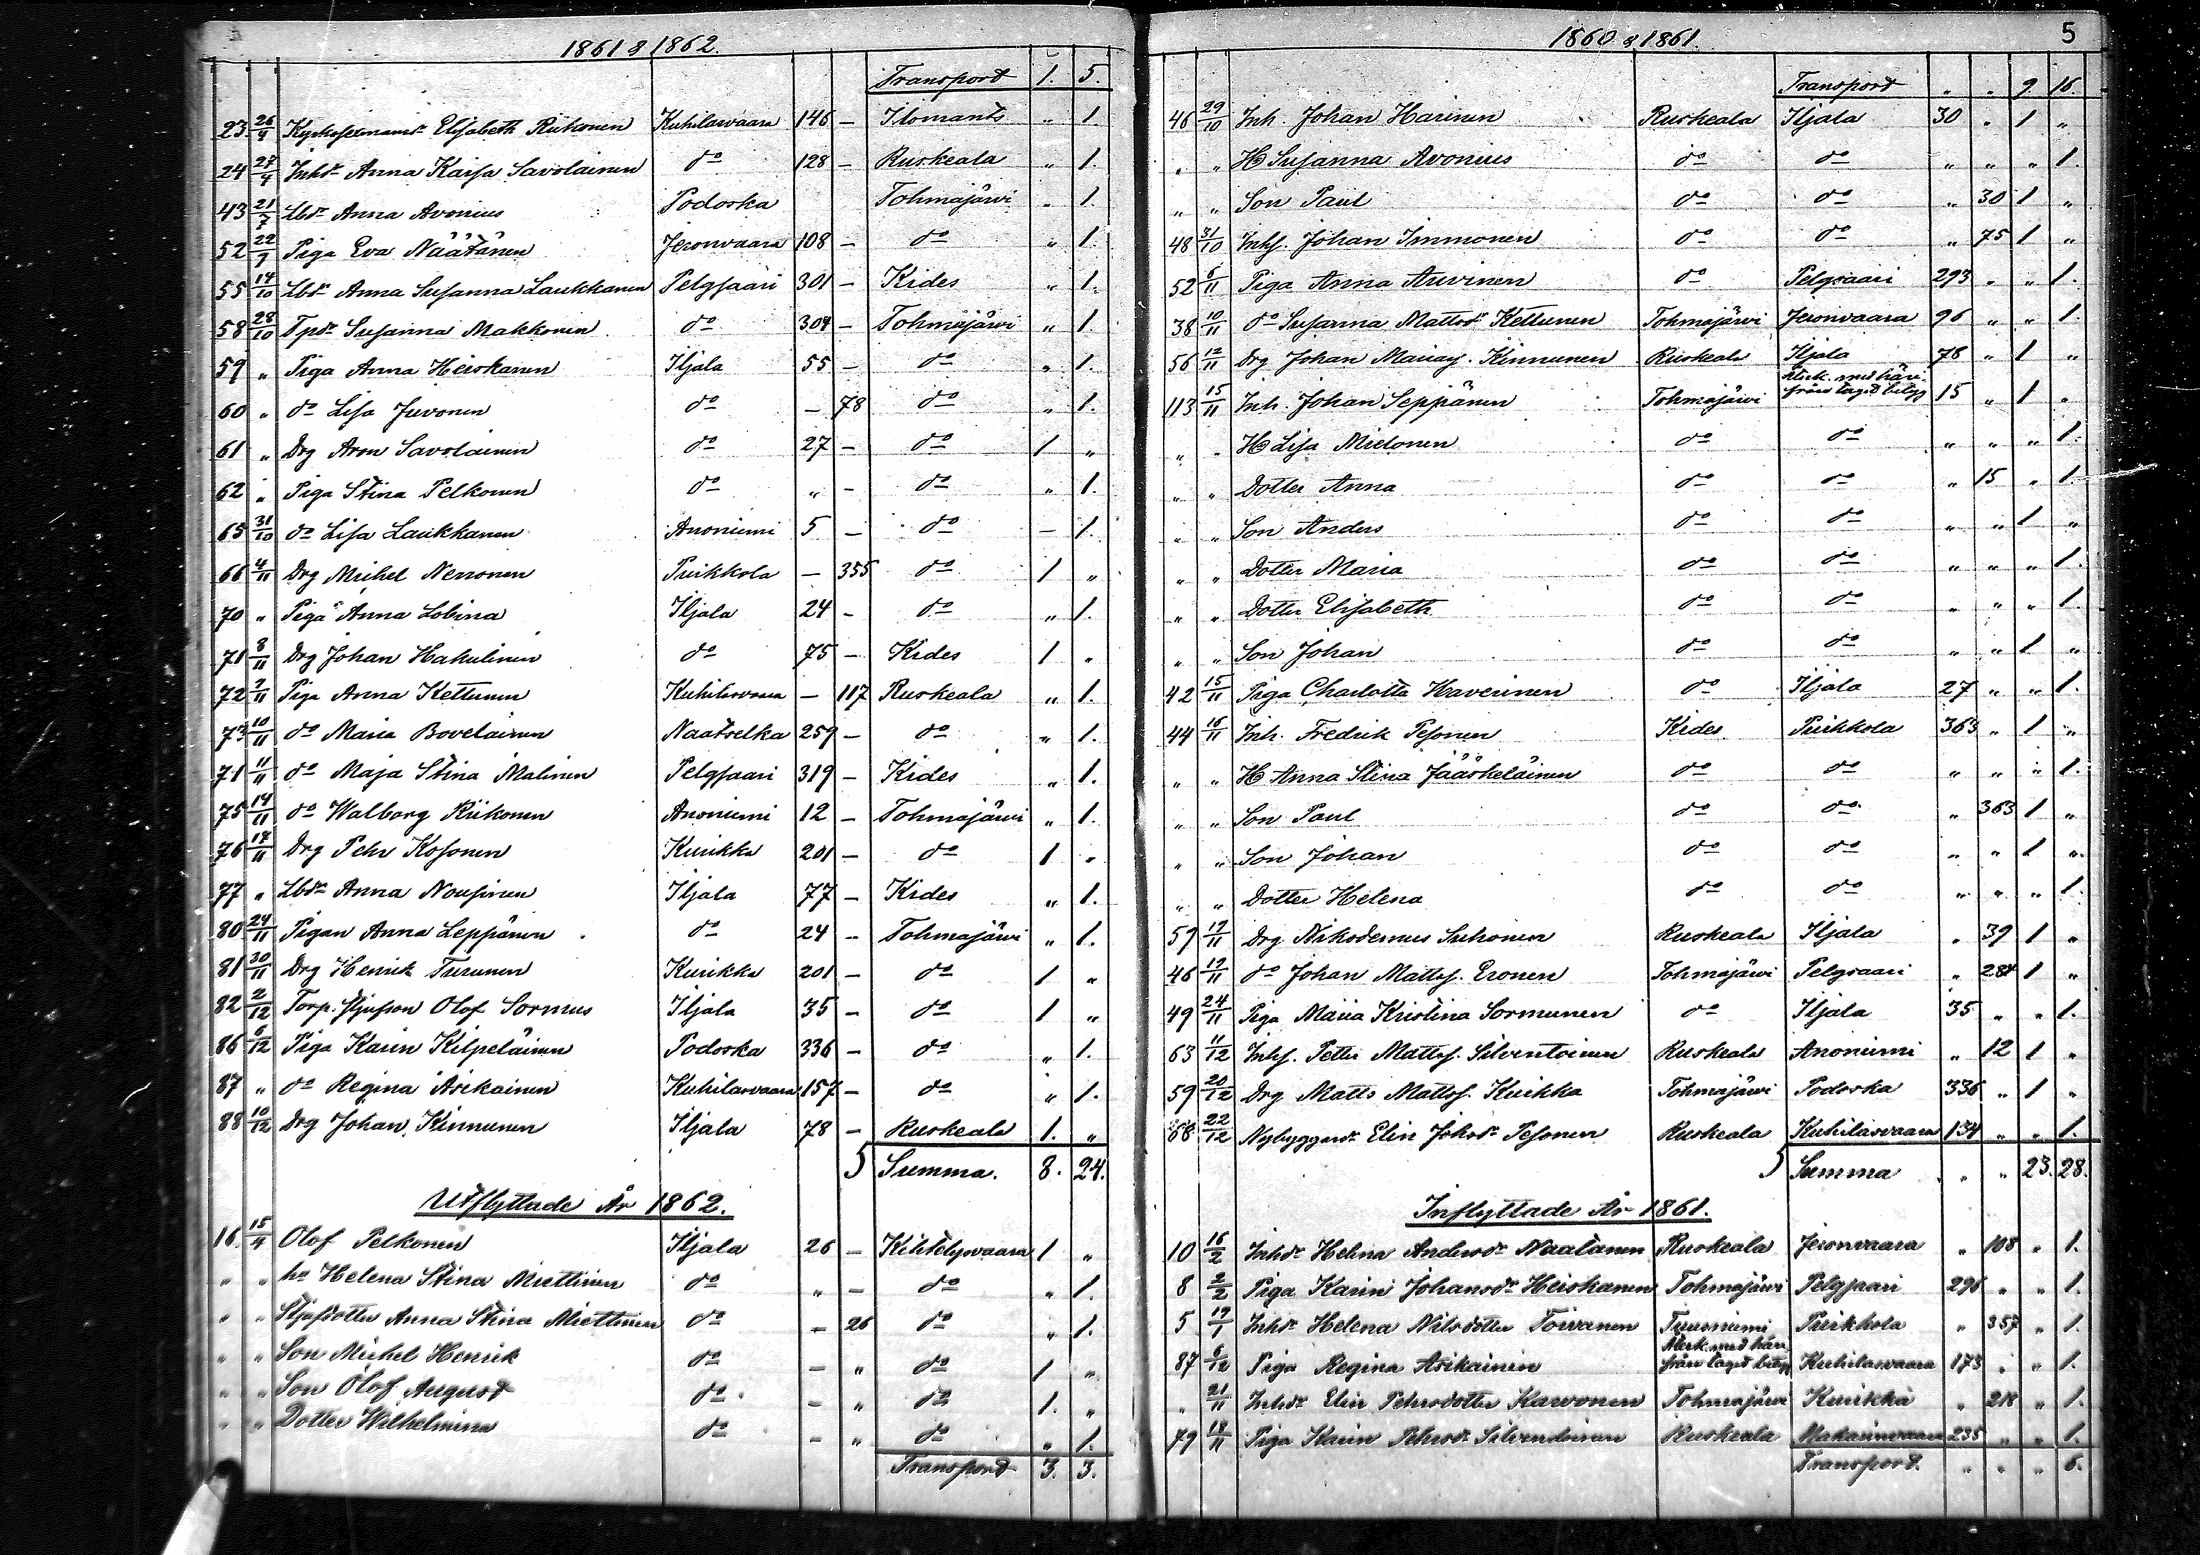 1861 & 1862.
Transport 1. 5.
23 26/4 Kyrkofermansdr Elisabeth Riikonen Kuhilasvaara 146 — Ilomants „ 1.
24 27/4 Inhdr Anna Kaisa Savolainen do 128 — Ruskeala „ 1.
43 21/7 Lbdr Anna Avonius Podorska Tohmajärwi „ 1.
52 22/9 Piga Eva Näätänen Jeronvaara 108 — do „ 1.
55 14/10 Lbdr Anna Susanna Laukkanen Pelgjaari 301 — Kides „ 1.
58 28/10 Tpdr Susanna Makkonen do 304 — Tohmajärwi „ 1.
59 „ Piga Anna Heiskanen Iljala 55 — do „ 1.
60 „ do Lisa Juvonen do — 78 do „ 1.
61 „ Drg Aron Savolainen do 27 — do 1 „
62 „ Piga Stina Pelkonen do „ — do „ 1.
65 31/10 do Lisa Laukkanen Anoniemi 5 — do — 1.
66 4/11 Drg Michel Nenonen Puikkola — 355 do 1 „
70 „ Piga Anna Lobina Iljala 24 — do „ 1.
71 8/11 Drg Johan Hakulinen do 75 — Kides 1 „
72 9/11 Piga Anna Kettunen Kuhilasvaara — 117 Ruskeala „ 1.
73 10/11 do Maria Bovelainen Naatselka 259 — do „ 1.
71 11/11 do Maja Stina Malinen Pelgjaari 319 — Kides „ 1.
75 14/11 do Walborg Riikonen Anoniemi 12 — Tohmajärwi „ 1.
76 17/11 Drg Pehr Kosonen Kuikka 201 — do 1 „
77 „ Lbdr Anna Nousinen Iljala 77 — Kides „ 1.
80 24/11 Pigan Anna Leppänen do 24 — Tohmajärwi „ 1.
81 30/11 Drg Henrik Turunen Kuikka 201 — do 1 „
82 2/12 Torp. Styfson Olof Sormus Iljala 35 — do 1 „
86 6/12 Piga Karin Kilpeläinen Podorska 336 — do „ 1.
87 „ do Regina Asikainen Kuhilasvaara 157 — do „ 1.
88 10/12 Drg Johan Kinnunen Iljala 78 — Ruskeala 1. „
5 Summa. 8. 24.
Utflyttade År 1862.
16 15/4 Olof Pelkonen Iljala 26 — Kihtelysvaara 1 „
„ „ hu Helena Stina Miettinen do „ — do „ 1.
„ „ Styfdotter Anna Stina Miettinen do — 26 do „ 1.
„ „ Son Michel Henrik do — „ do 1 „
„ „ Son Olof August do — „ do 1. „
„ „ Dotter Wilhelmina do — „ do „ 1.
Transport 3. 3.
1860 & 1861. 5
Transport „ „ 9 16.
46 29/10 Inh. Johan Harinen Ruskeala Iljala 30 „ 1 „
„ „ H Susanna Avonius do do „ „ „ 1.
„ „ Son Paul do do „ 30 1 „
48 31/10 Inhs. Johan Immonen do do „ 75 1 „
52 6/11 Piga Anna Auvinen do Pelgsaari 293 „ „ 1.
38 10/11 do Susanna Mattsdr Kettunen Tohmajärwi Jeronvaara 96 „ „ 1.
56 12/11 Drg Johan Kinnunen Ruskeala Iljala 78 „ 1 „
113 15/11 Inh. Johan Seppänen Tohmajärwi återk. med häri-från taget betyg 15 „ 1 „
„ „ H Lisa Mielonen do do „ „ „ 1.
„ „ Dotter Anna do do „ 15 „ 1.
„ „ Son Anders do do „ „ 1 „
„ „ Dotter Maria do do „ „ „ 1.
„ „ Dotter Elisabeth do do „ „ „ 1.
„ „ Son Johan do do „ „ 1 „
42 15/11 Piga Charlotta Haverinen do Iljala 27 „ „ 1.
44 16/11 Inh. Fredrik Pesonen Kides Puikkola 363 „ 1 „
„ „ H Anna Stina Jääskeläinen do do „ „ „ 1.
„ „ Son Paul do do „ 363 1 „
„ „ Son Johan do do „ „ 1 „
„ „ Dotter Helena do do „ „ „ 1.
59 17/11 Drg Nikodemus Suhonen Ruskeala Iljala „ 39 1 „
46 19/11 do Johan Mattss. Eronen Tohmajärwi Pelgsaari „ 284 1 „
49 24/11 Piga Maria Kristina Sormunen do Iljala 35 „ „ 1.
63 11/12 Inhs. Petter Mattss. Silventoinen Ruskeala Anoniemi „ 12 1 „
59 20/12 Drg Matts Mattss. Kuikka Tohmajärwi Podorska 336 „ 1 „
68 22/12 Nybyggaredr Elin Johsdr Pesonen Ruskeala Kuhilasvaara 134 „ „ 1.
5 Summa „ „ 23. 28.
Inflyttade År 1861.
10 16/2 Inhdr Helena Andersdr Naatanen Ruskeala Jeronvaara „ 108 „ 1.
8 2/2 Piga Karin Johansdr Heiskanen Tohmajärwi Pelgjaari 296 „ „ 1.
5 19/1 Inhdr Helena Nilsdotter Toivanen Tuusniemi Puikkola „ 357 „ 1.
87 6/12 Piga Regina Asikainen Återk. med häri-från taget betyg Kuhilasvaara 173 „ „ 1.
„ 21/11 Inhdr Elin Pehrsdotter Karvonen Tohmajärwi Kuikka „ 218 „ 1.
79 18/11 Piga Karin Pehrsdr Silvendoinen Ruskeala Makarinvaara 235 „ „ 1.
Transport. „ „ „ 6.